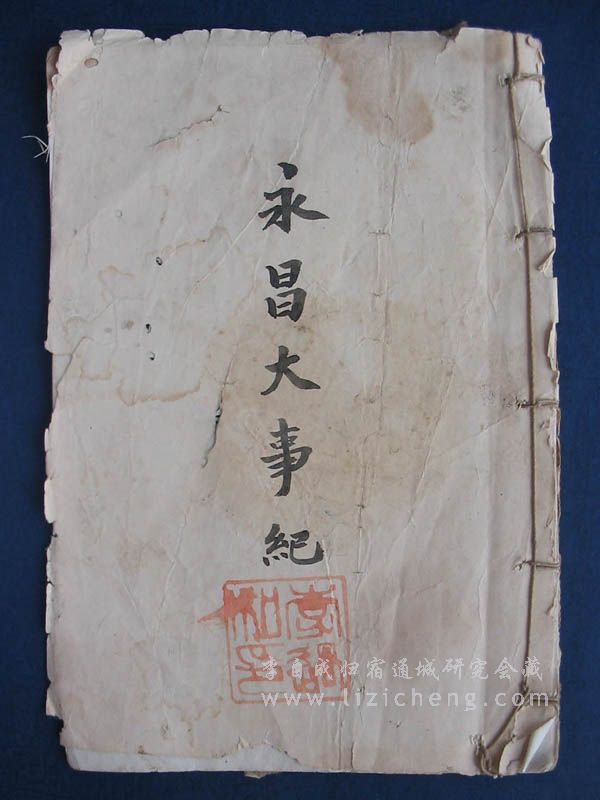 永昌大事紀
李自成归宿通城研究会藏
www.lizicheng.com